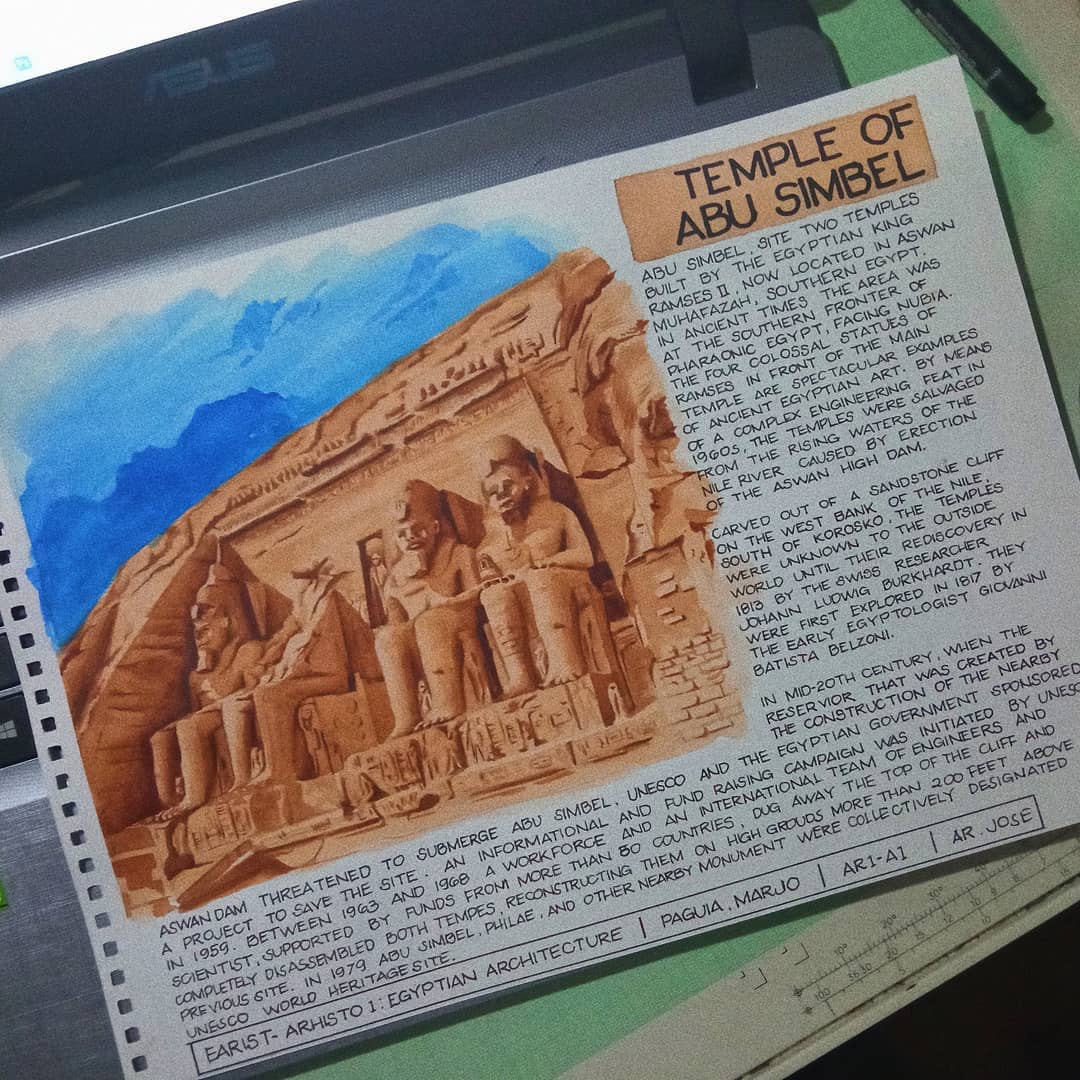 ASUS
TEMPLE OF
ABU SIMBEL
ABU SIMBEL, SITE TWO TEMPLES
BUILT BY THE EGYPTIAN KING
RAMSES II, NOW LOCATED IN ASWAN
MUHAFAZAH, SOUTHERN EGYPT.
IN ANCIENT TIMES THE AREA WAS
AT THE SOUTHERN FRONTER OF
PHARAONIC EGYPT, FACING NUBIA.
THE FOUR COLOSSAL STATUES OF
RAMSES IN FRONT OF THE MAIN
TEMPLE ARE SPECTACULAR EXAMPLES
OF ANCIENT EGYPTIAN ART. BY MEANS
OF A COMPLEX ENGINEERING FEAT IN
1960S, THE TEMPLES WERE SALVAGED
FROM THE RISING WATERS OF THE
NILE RIVER CAUSED BY ERECTION
OF THE ASWAN HIGH DAM.
CARVED OUT OF A SANDSTONE CLIFF
ON THE WEST BANK OF THE NILE,
SOUTH OF KOROSKO, THE TEMPLES
WERE UNKNOWN TO THE OUTSIDE
WORLD UNTIL THEIR REDISCOVERY IN
1813 BY THE SWISS RESEARCHER
JOHANN LUDWIG BURKHARDT. THEY
WERE FIRST EXPLORED IN 1817 BY
THE EARLY EGYPTOLOGIST GIOVANNI
BATISTA BELZONI.
IN MID-20TH CENTURY, WHEN THE
RESERVIOR THAT WAS CREATED BY
THE CONSTRUCTION OF THE NEARBY
ASWAN DAM THREATENED TO SUBMERGE ABU SIMBEL, UNESCO AND THE EGYPTIAN GOVERNMENT SPONSORED
A PROJECT TO SAVE THE SITE. AN INFORMATIONAL AND FUND RAISING CAMPAIGN WAS INITIATED BY UNESCO
IN 1959. BETWEEN 1963 AND 1968 A WORKFORCE AND AN INTERNATIONAL TEAM OF ENGINEERS AND
SCIENTIST, SUPPORTED BY FUNDS FROM MORE THAN 50 COUNTRIES, DUG AWAY THE TOP OF THE CLIFF AND
COMPLETELY DISASSEMBLED BOTH TEMPES, RECONSTRUCTING THEM ON HIGH GROUDS MORE THAN 200 FEET ABOVE
PREVIOUS SITE. IN 1979 ABU SIMBEL, PHILAE, AND OTHER NEARBY MONUMENT WERE COLLECTIVELY DESIGNATED
UNESCO WORLD HERITAGE SITE.
EARIST- ARHISTO 1: EGYPTIAN ARCHITECTURE | PAGUIA, MARJO | AR1-A1 | AR. JOSE